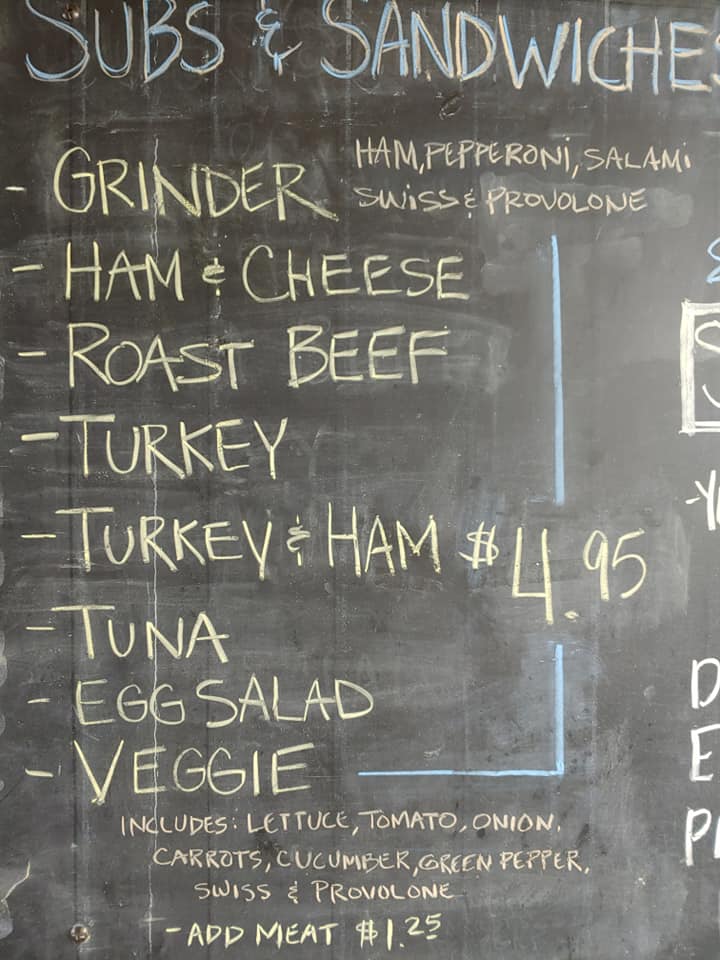 SUBS & SANDWICHES
- GRINDER HAM, PEPPERONI, SALAMI
SWISS & PROVOLONE
- HAM & CHEESE
- ROAST BEEF
- TURKEY
- TURKEY & HAM $4.95
- TUNA
- EGG SALAD
- VEGGIE
INCLUDES: LETTUCE, TOMATO, ONION,
CARROTS, CUCUMBER, GREEN PEPPER,
SWISS & PROVOLONE
- ADD MEAT $1.25